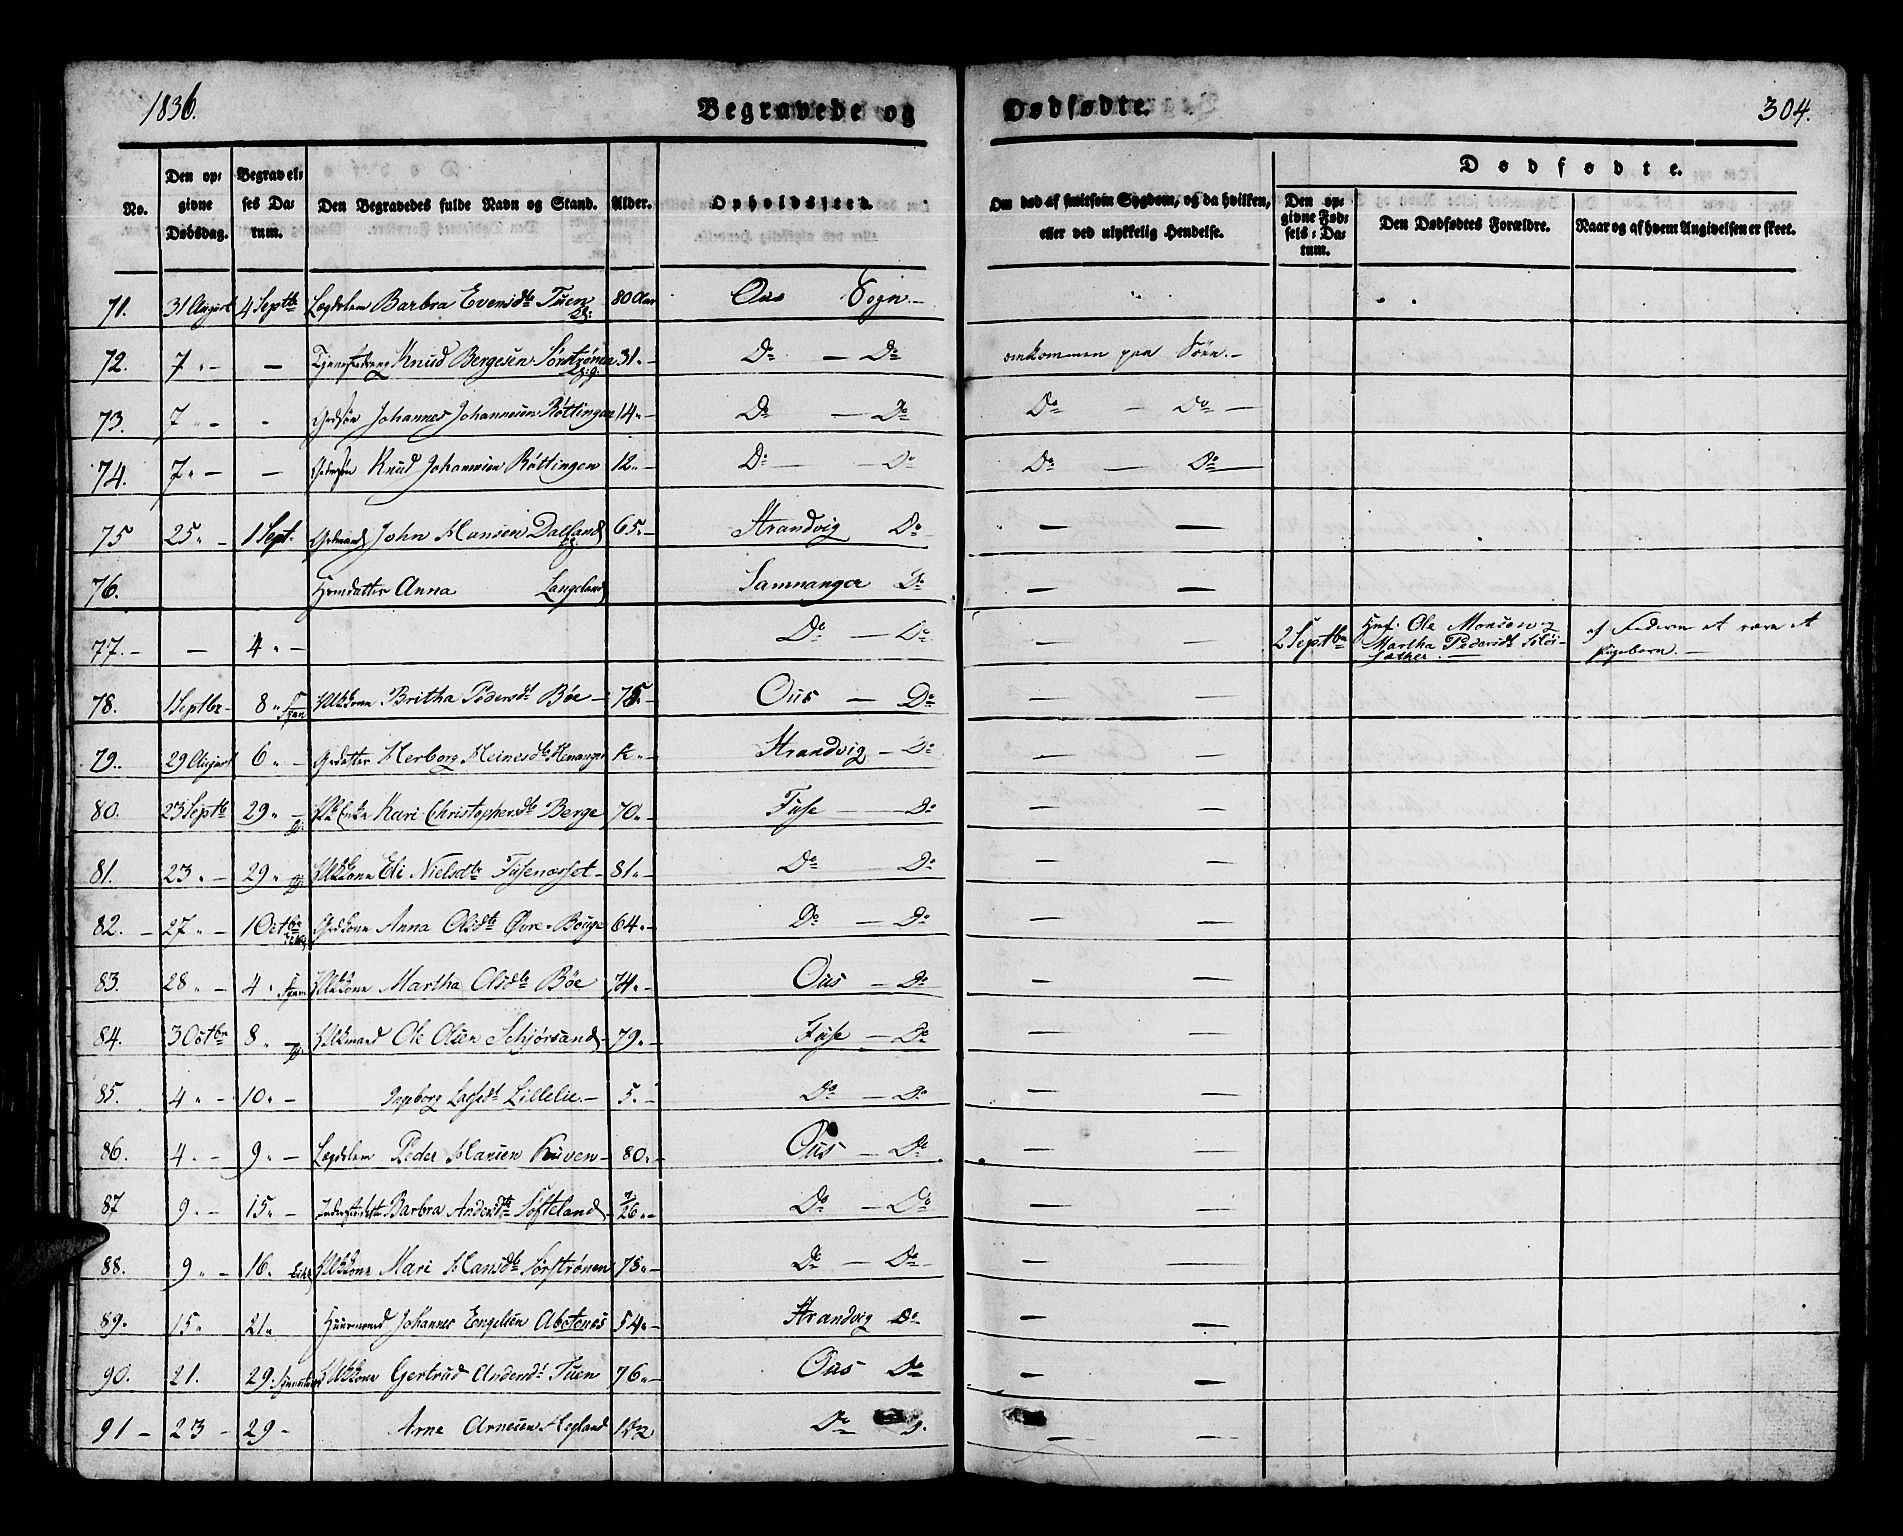 1836.
Begravede og
Dødfødte.
304.
No.
Den opgivne Dødsdag.
Begravelses Datum.
Den Begravedes fulde Navn og Stand.
Alder.
Opholdssted.
Om død af smitsom Sygdom, og da hvilken, eller ved ulykkelig Hendelse.
Dødfødte.
Den opgivne Fødsels-Datum.
Den Dødfødtes Forældre.
Naar og af hvem Angivelsen er skeet.
71. 31 August 4 Septbr Lægdslem Barbra Evensdtr Tuen 80 Aar Ous Sogn.-
72. 7 " - - Knud Bergesen Sørstrønen 31.- Do - Do omkommen paa Søen.-
73. 7 " - - Grdsøn Johannes Johannesen Røttingen 14.- Do - Do Do - Do -
74. 7 " - - Knud Johannesen Røttingen 12.- Do - Do Do - Do
75 25 " - 1 Sept. Grdmand John Hansen Dalland 65.- Strandvig Do - -
76. Huusdatter Anna Langeland Samnanger Do - -
77.- - 4 " - Do - Do - - 2 Septbr Huf. Ole Monsen Martha Pedersdt af Faderen at være et Pigebarn.-
78. 1 Septbr- 8 " Britha Pedersdt Bøe - 75.- Ous - Do - -
79. 29 August 6 " - Grdatter Herborg Heinesdtr Henanger Strandvig - Do - -
80. 23 Septbr 29 " - Enke Kari Christophersdtr Berge 70.- Fuse - Do - -
81. 23 " - 29 " Eli Nielsdtr Fusenesset - 81.- Do - Do - -
82. - 27 " - 1 Octbr Grdkone Anna Olsdtr Øvre-Bouge 64.- Do - Do - -
83. 28 " - 4 " Martha Olsdtr Bøe 74.- Ous - Do - -
84. 3 Octbr 8 " - Ole Olsen Schjørsand - 79.- Fuse - Do - -
85. 4 " - 10 " - Ingeborg Larsdt Lillelie.- 5.- Do - Do - -
86. 4 " - 9 " - Lægdslem Peder Hansen Kuven - 80.- Ous - Do - -
87 9 " - 15 " - Barbra Andersdtr Søfteland - 7/26.- Do - Do - -
88. 9 " - 16 " Mari Hansdtr Sørstrønen 78.- Do - Do - -
89. 15 " 21 " Huusmand Johannes Engelsen 54.- Strandvig Do - -
90. 21. 29. Gertrud Andersdt Tuen 76.- Ous Do - -
91 - 23 - 29 - Arne Arnesen Hegland Do - -